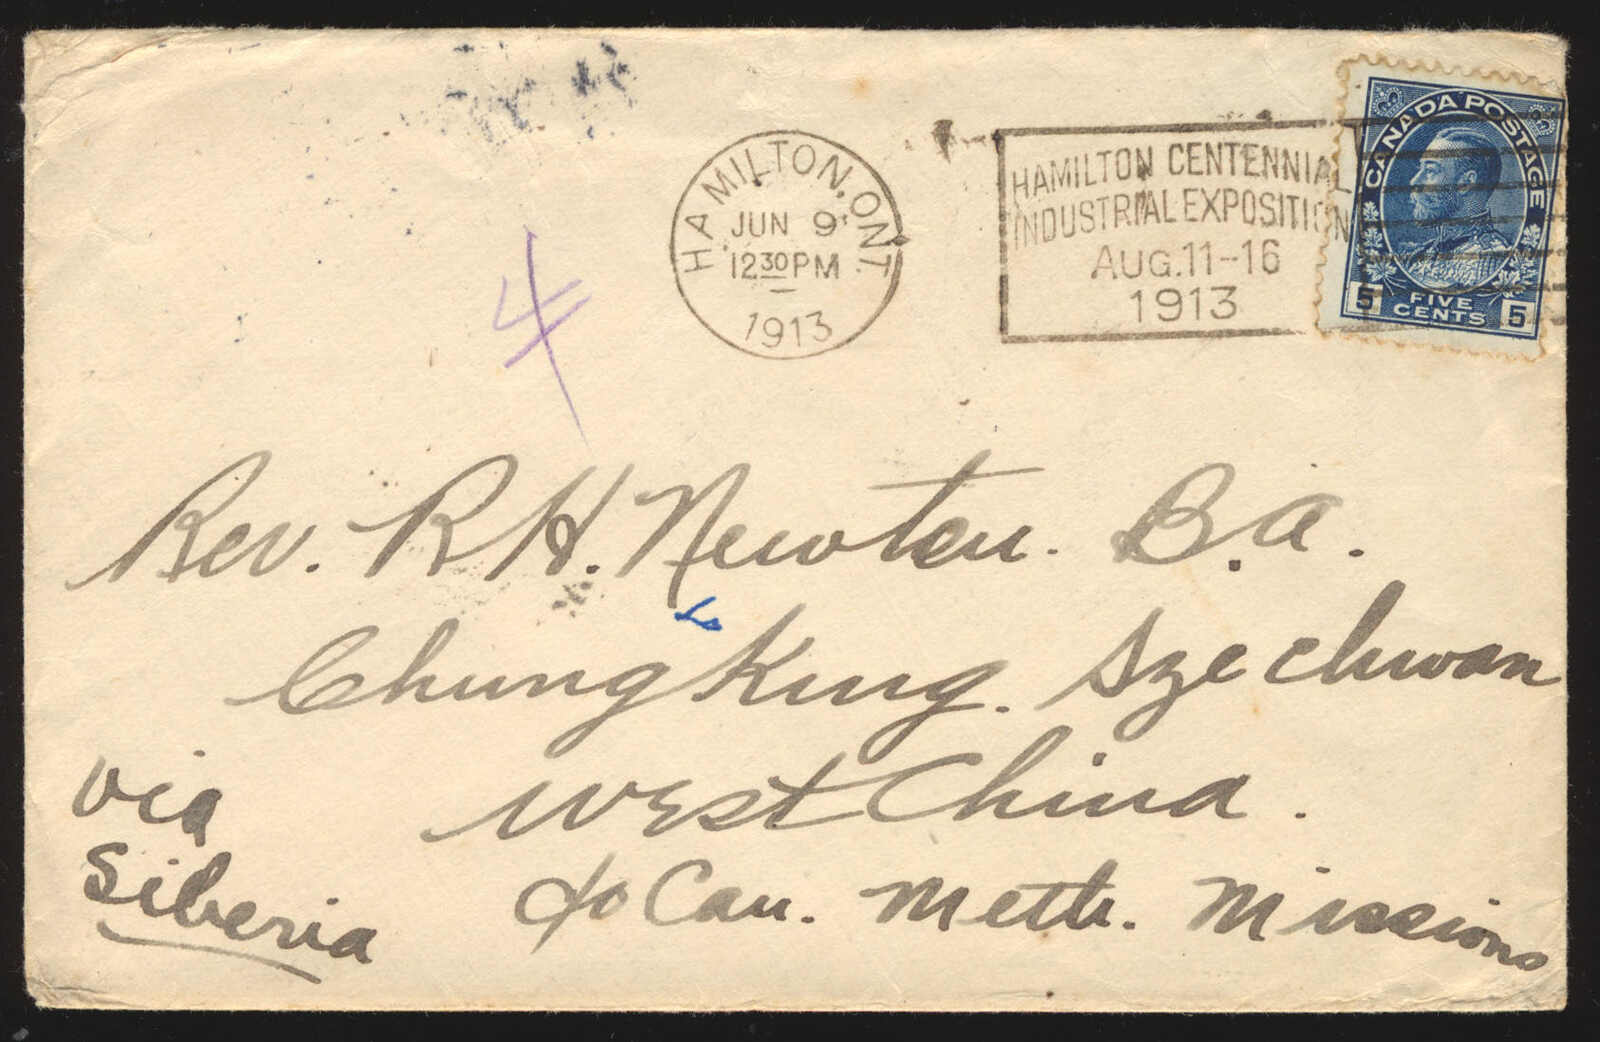 HAMILTON, ONT.
JUN 9
12 30 PM
1913
HAMILTON CENTENNIAL
INDUSTRIAL EXPOSITION
AUG. 11-16
1913
CANADA POSTAGE
5 FIVE CENTS 5
4
Rev. R H. Newton. B.A.
Chung King. Szechwan
West China.
c/o Can. Meth. Missions
via
Siberia